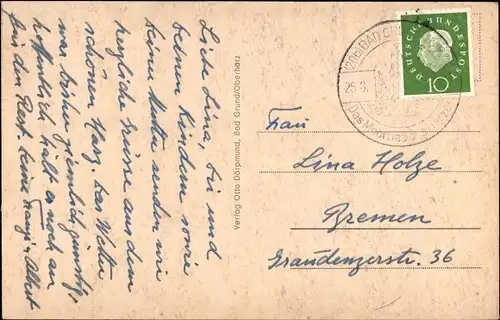 Liebe Lina, dir und
deinen Kindern sowie
deiner Mutter senden wir
herzliche Grüsse aus dem
schönen Harz. Das Wetter
war bisher ziemlich günstig,
hoffentlich hält es noch an
für den Rest. Deine u. Albert
Verlag Otto Dörpmund, Bad Grund/Oberharz
(20b) BAD
25.3.
DEUTSCHE BUNDESPOST
10
Frau
Lina Holze
Bremen
Graudenzerstr. 36